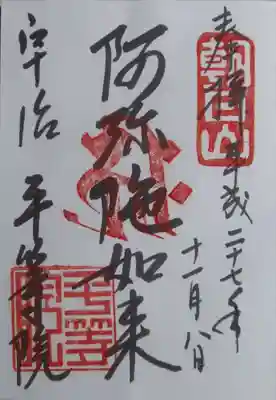 奉拝 平成二十七年
十一月八日
阿弥陀如来
宇治 平等院
朝日山